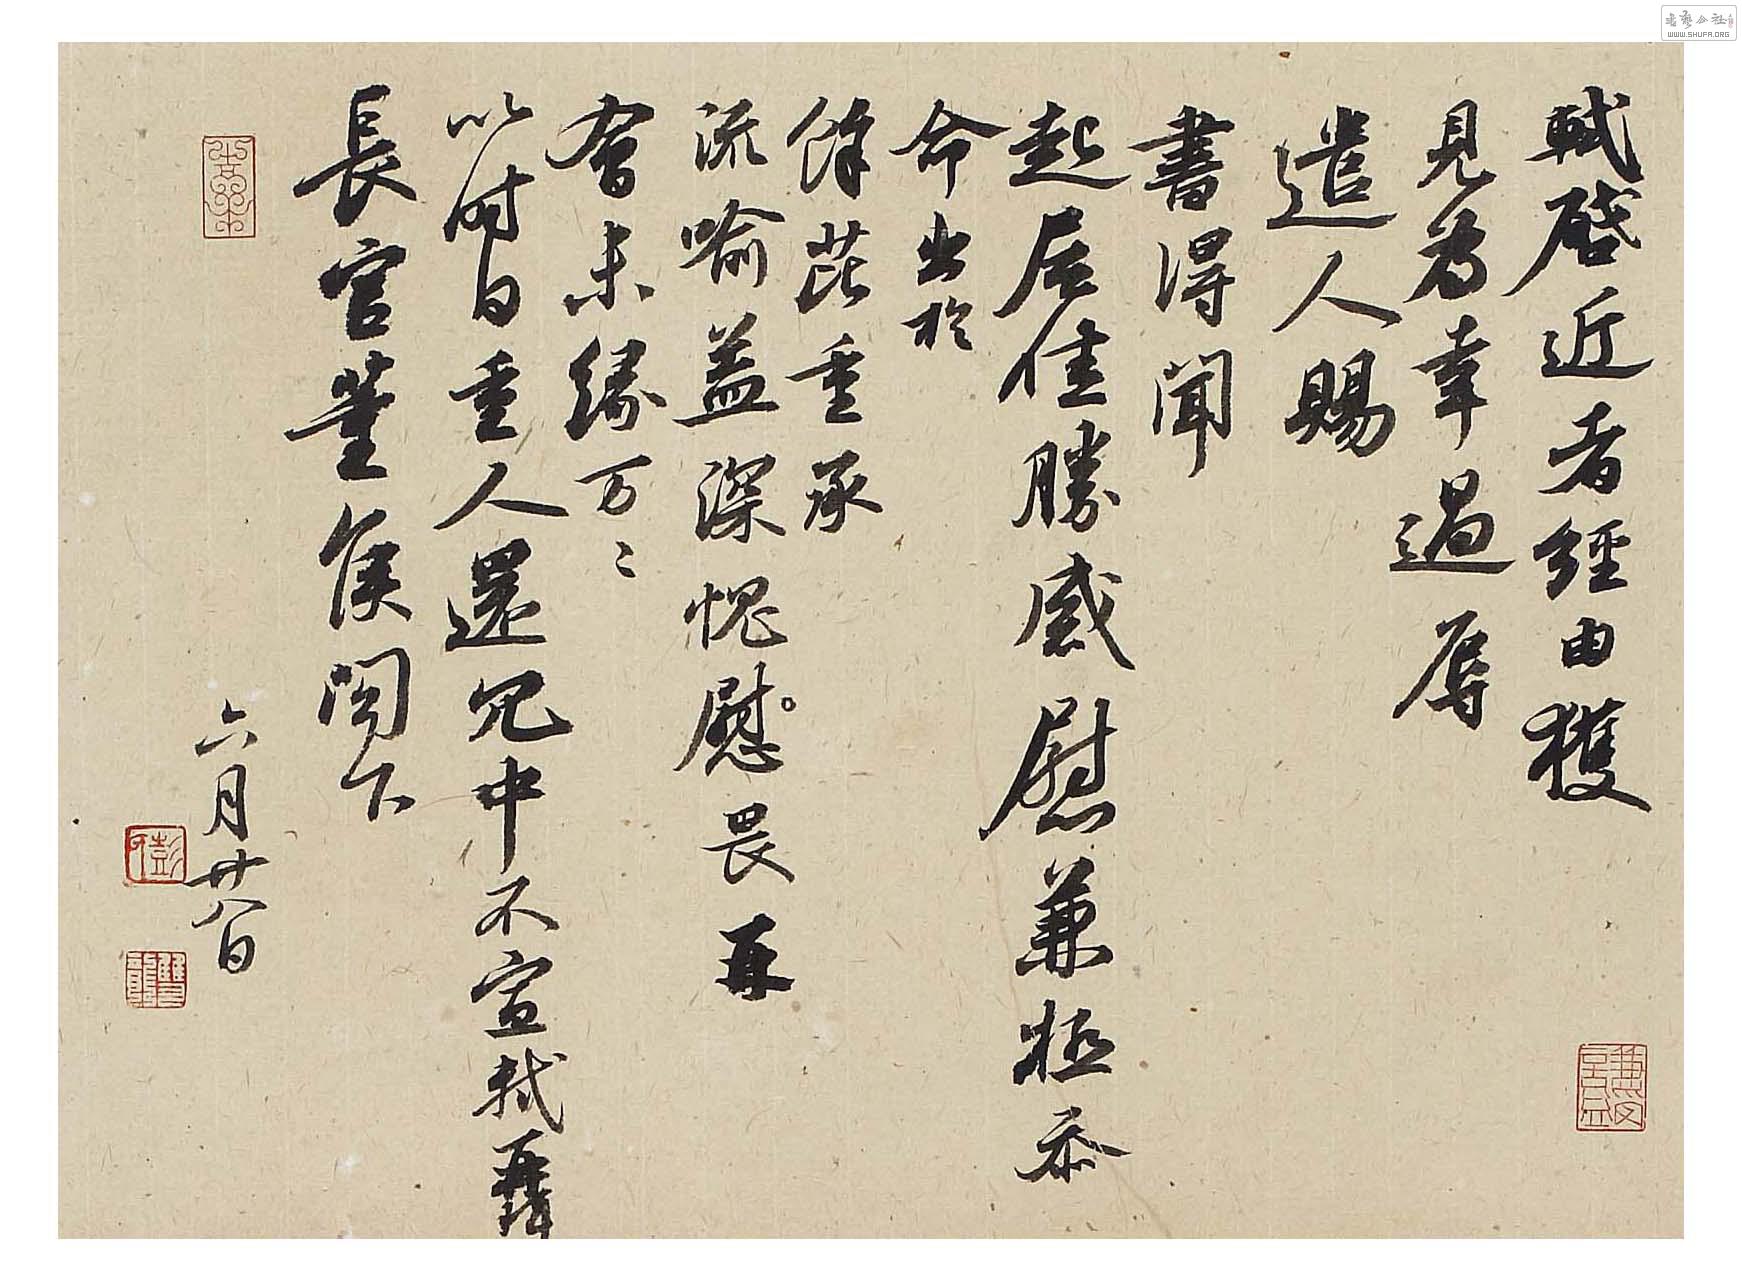 軾啓近者經由獲
見為幸過辱
遣人賜
書得聞
起居佳勝感慰兼極忝
命出於
餘芘重承
流喻益深愧慰畏再
會未緣万〻
以时自重人還冗中不宣軾再拜
長官董侯閣下
六月廿八日
WWW.SHUFA.ORG